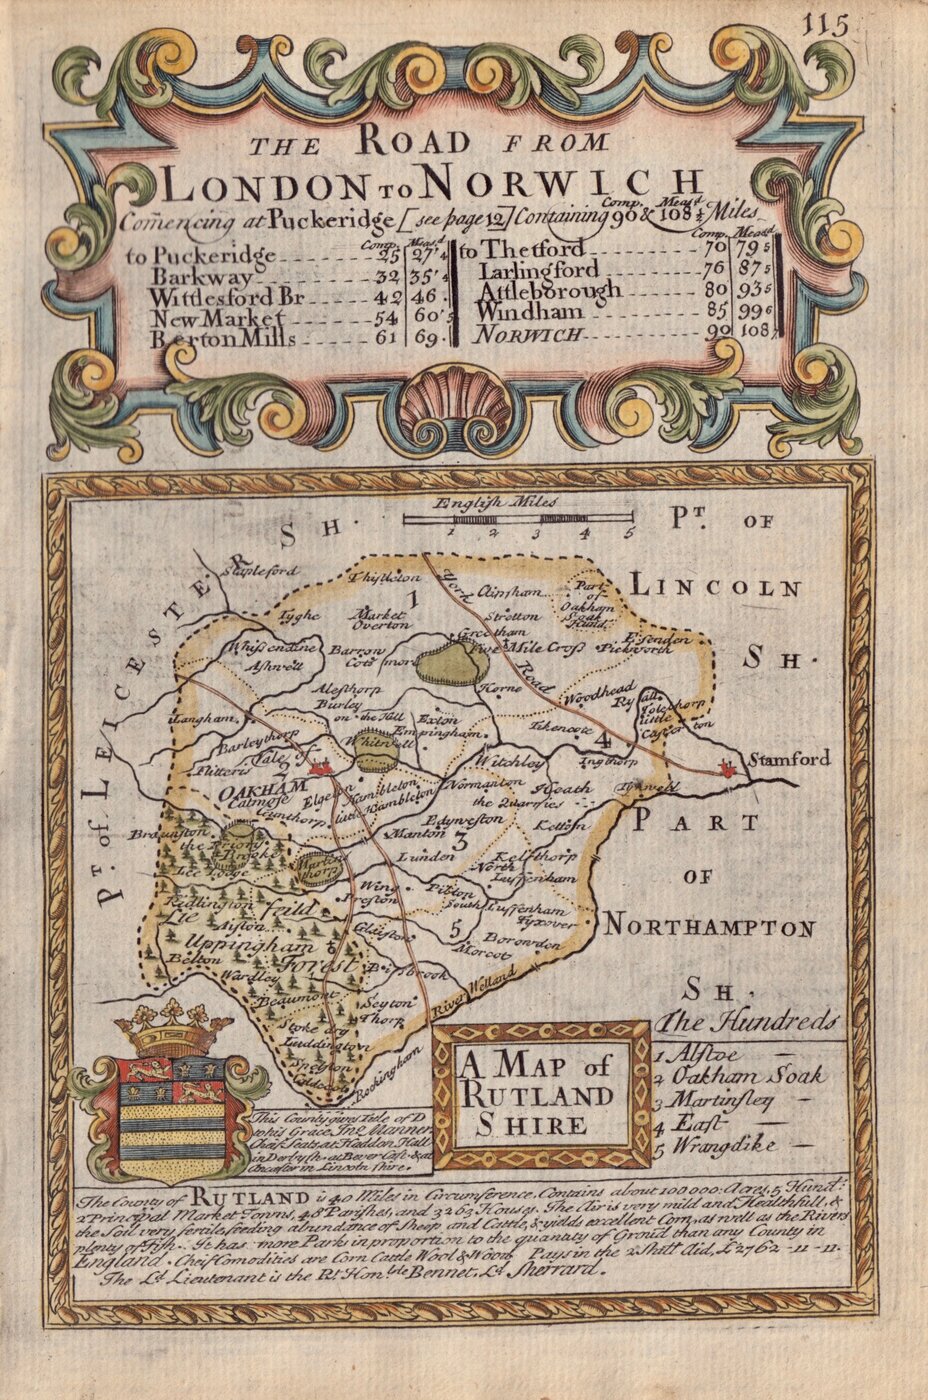 115
THE ROAD FROM
LONDON TO NORWICH
Comp. Meas.d
Com̄encing at Puckeridge [see page 12] Containing 90 & 108 ½ Miles
Comp. Meas.d
to Puckeridge 25 27'4
Barkway 32 35'4
Wittlesford Br 42 46.
New Market 54 60'5
Berton Mills 61 69.
Comp. Meas.d
to Thetford 70 79 5
Larlingford 76 87 5
Attleborough 80 93 5
Windham 85 99 6
NORWICH 90 108
English Miles
1 2 3 4 5
PT. OF
LINCOLN
SH.
Pt. of LEICESTER SH.
Stapleford
Thistleton
1
York
Road
Clipsham
Part
of
Oakham
Soak
Hund.
Tyghe
Market
Overton
Stretton
Greetham
Five Mile Cross
Essenden
Pickworth
Whissendine
Ashwell
Barrow
Cotsmore
Horne
Woodhead
Ryall
Tolethorp
Little
Casterton
Alesthorp
Burley
on the Hill
Exton
Empingham
Tikencote
4
Ingthorp
Stamford
Langham
Barleythorp
Vale of
2
Flitteris
Whitwell
Witchley
Heath
OAKHAM
Catmose
Egleton
Hambleton
Little Hambleton
Gunthorp
Normanton
the Quarries
Tinwell
PART
OF
NORTHAMPTON
SH.
Braunston
the Priory
Brooke
Lee Lodge
Martins
thorp
Manton
Edyweston
3
Ketton
Lunden
Kelthorp
North
Luffenham
Ridlington
Lie feild
Aiston
Wing
Preston
Pilton
South Luffenham
Tixover
Uppingham
6
Forest
Glaiston
5
Borowden
Morcot
Belton
Wardley
Bissbrook
River Welland
Beaumont
Seyton
Thorp
Stoke dry
Luddington
Snelston
Caldecot
Rockingham
The Hundreds
1 Alstoe
2 Oakham Soak
3 Martinsley
4 East
5 Wrangdike
A MAP of
RUTLAND
SHIRE
This County gives Title of D
to his Grace Jno. Manner.
Chief Seats at Haddon Hall
in Derbysh. at Bever Cast. & at
Ancaster in Lincoln shire.
The County of RUTLAND is 40 Miles in Circumference, Contains about 100000 Acres, 5 Hund:
2 Principal Market Towns, 48 Parishes, and 3263 Houses. The Air is very mild and Healthfull, &
the Soil very fertile, feeding abundance of Sheep and Cattle, & yields excellent Corn, as well as the Rivers
plenty of Fish. It has more Parks in proportion to the quantity of Groūd than any County in
England. Cheif Com̄odities are Corn Cattle Wool & Wood. Pays in the 2 Shill. Aid, £2762-11-11.
The Ld. Lieutenant is the Rt. Honble Bennet, Ld. Sherrard.